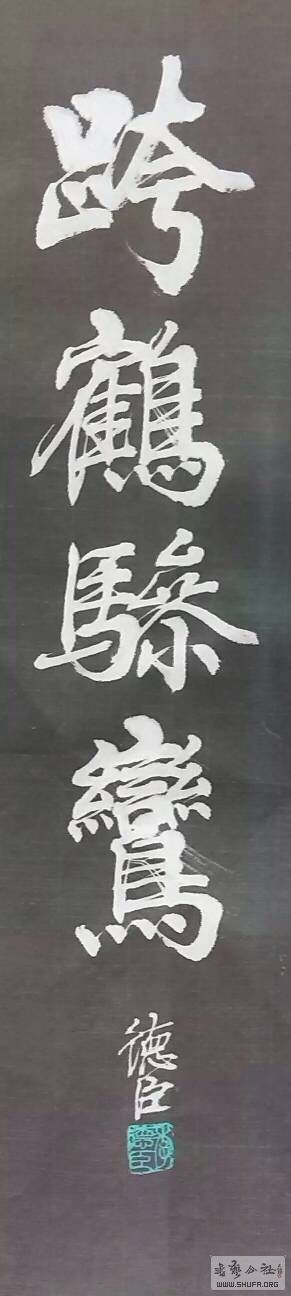 跨鶴驂鸞
德臣
WWW.SHUFA.ORG